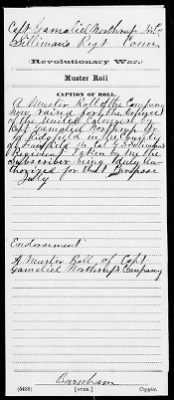 Capt Gamaliel Northrup's Co
Silliman's Regt Conn.
Revolutionary War.
Muster Roll
CAPTION OF ROLL.
A Muster Roll of the Company
now raised for the defence
of the United Colonies by
Capt Gamaliel Northrop
of Ridgfield in the County
of Fairfield in Col G S Sillimans
Regiment taken by me the
subscriber being duly au-
thorized for that Purpose
July
Endorsement
A Muster Roll of Capt
Gamaliel Northrup's Company
Burnham
[OVER.]
Copyist.